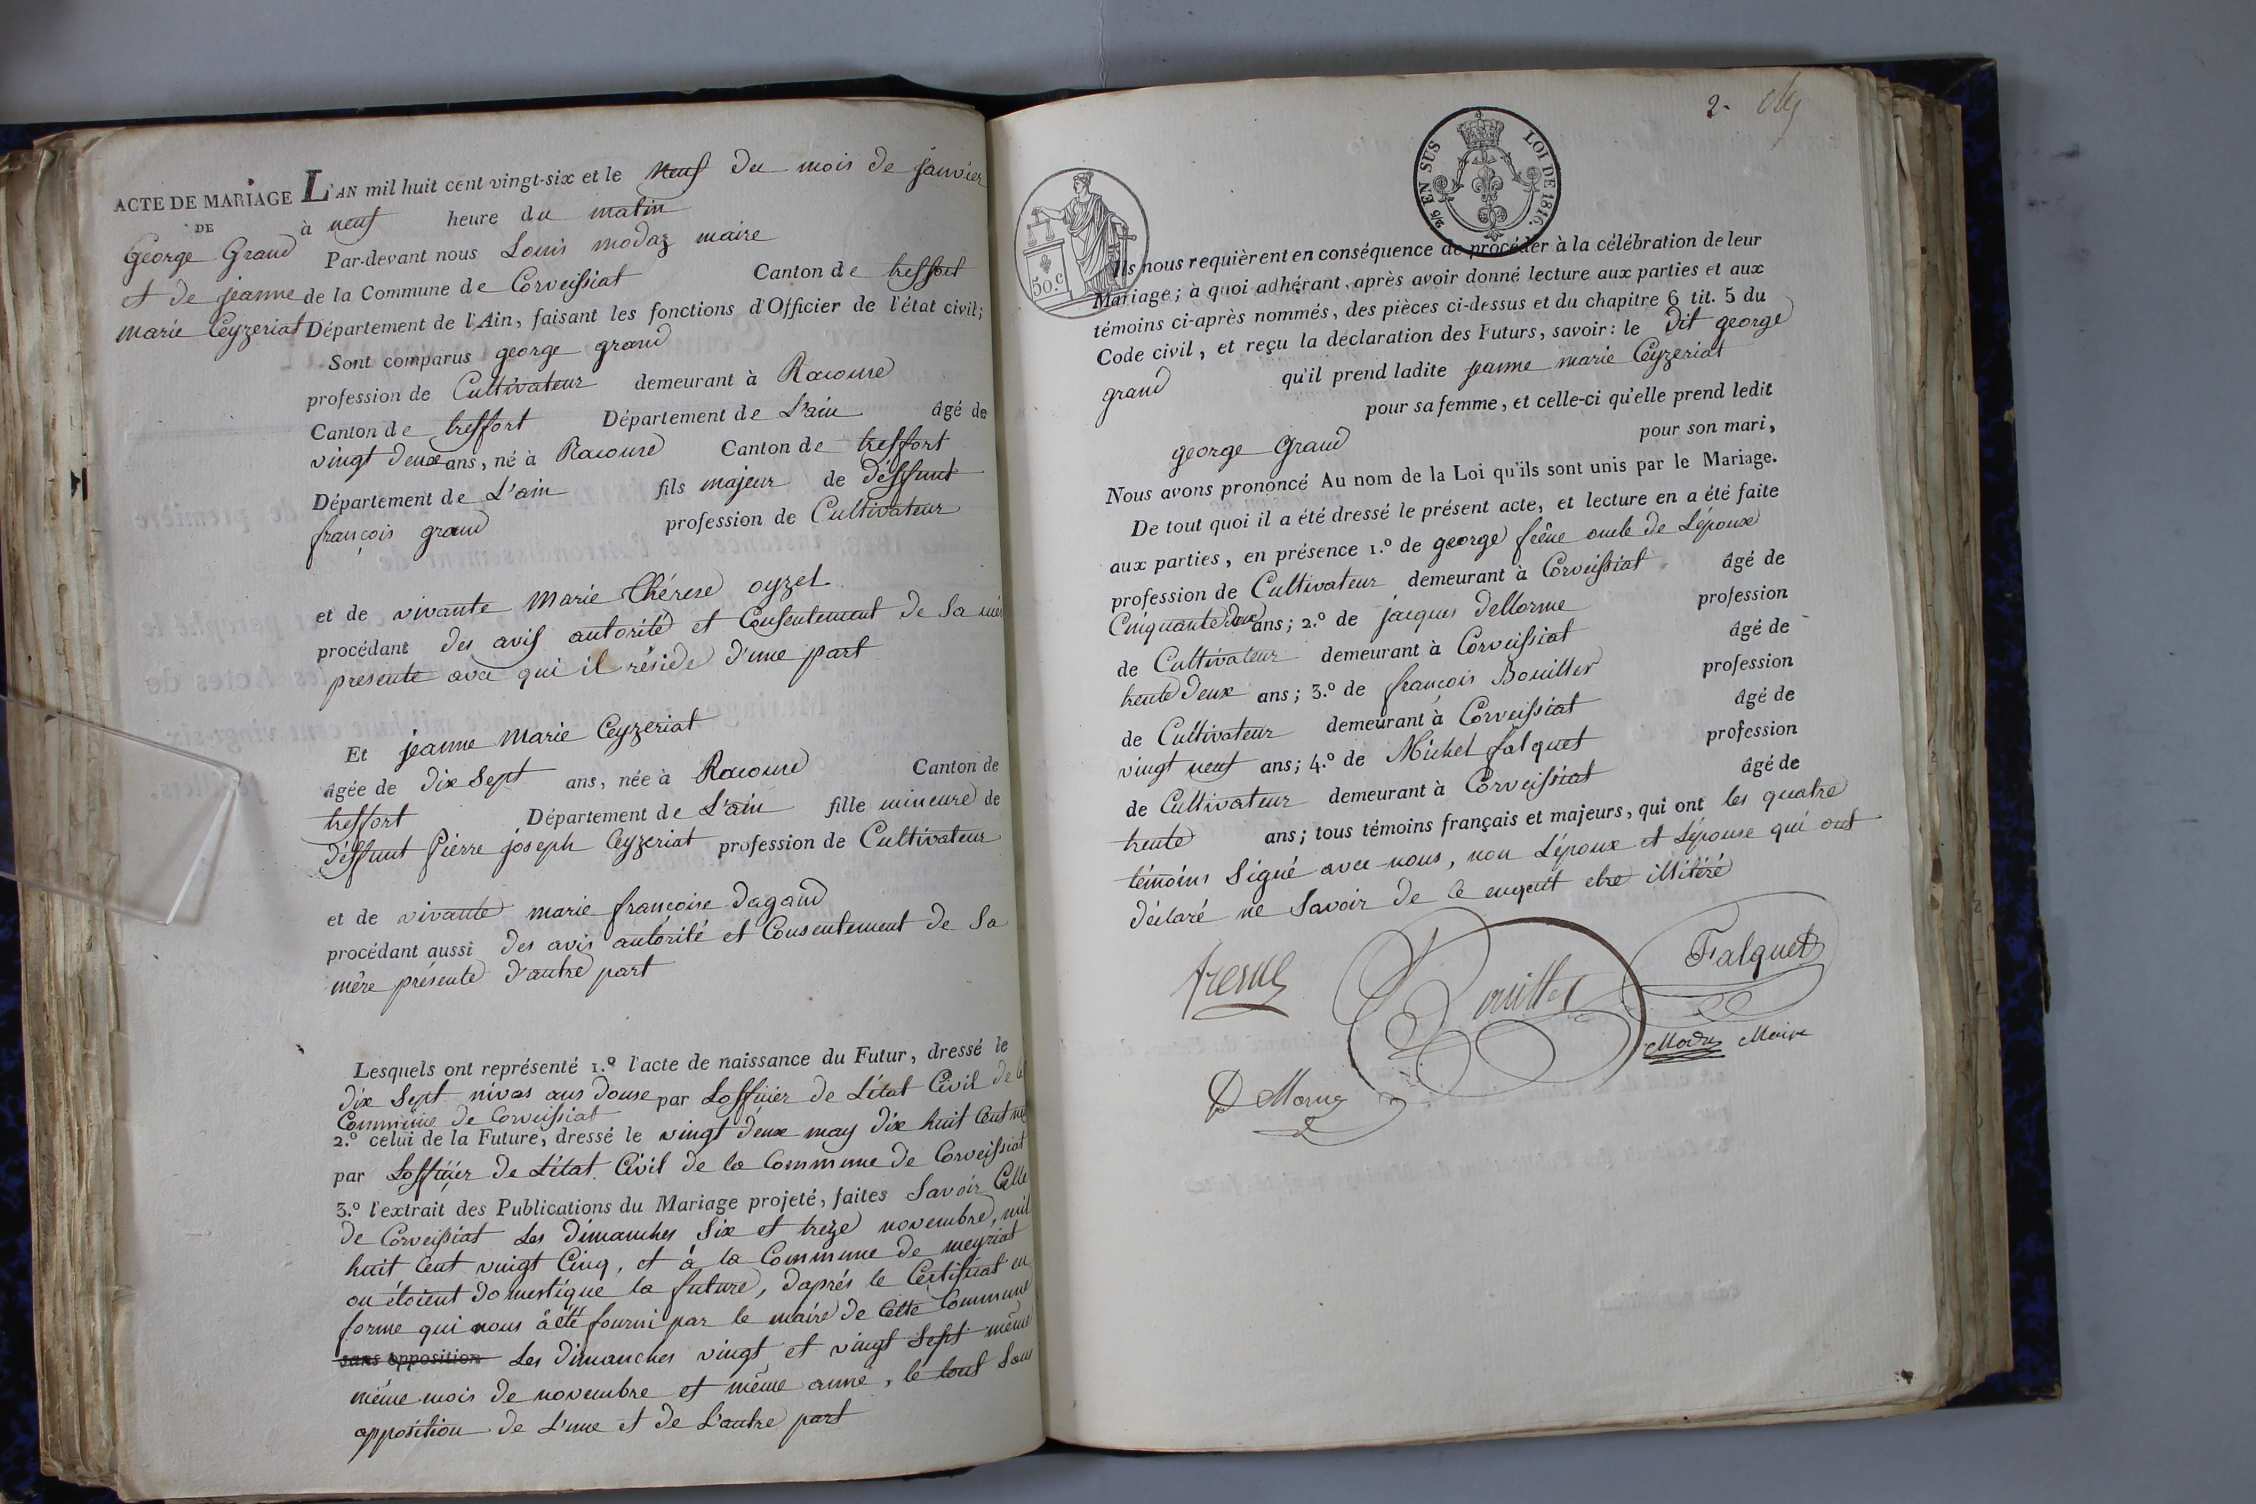 ACTE DE MARIAGE
DE
George Grand
et de jeanne
marie Ceyzeriat
L'AN mil huit cent vingt-six et le neuf du mois de janvier
à neuf heure du matin
Par-devant nous Louis modaz maire
de la Commune de Corveissiat Canton de treffort
Département de l'Ain, faisant les fonctions d'Officier de l'état civil;
Sont comparus george grand
profession de Cultivateur demeurant à Racouse
Canton de treffort Département de L'ain âgé de
vingt deux ans, né à Racouse Canton de treffort
Département de L'ain fils majeur de deffunt
françois grand profession de Cultivateur
et de vivante Marie thérese oyzel
procédant des avis autorité et Consentement de Sa mère
presente avec qui il réside d'une part
Et jeanne Marie Ceyzeriat
âgée de dix Sept ans, née à Racouse Canton de
treffort Département de L'ain fille mineure de
deffunt Pierre joseph Ceyzeriat profession de Cultivateur
et de vivante marie françoise dagand
procédant aussi des avis autorité et Consentement de Sa
mère présente d'autre part
Lesquels ont représenté 1.º l'acte de naissance du Futur, dressé le
dix Sept nivos ans douse par Lofficier de L'état Civil de la
Commune de Corveissiat
2.º celui de la Future, dressé le vingt deux may dix huit Cent
par Lofficier de L'état Civil de la Commune de Corveissiat
3.º l'extrait des Publications du Mariage projeté, faites Savoir Celle
de Corveissiat Les dimanches Six et treze novembre, mil
huit Cent vingt Cinq, et à la Commune de meyriat
ou étoient domestique la future, daprés le Certificat en
forme qui nous à été fourni par le maire de Cette Commune
sans opposition Les dimanches vingt et vingt Sept même
même mois de novembre et même anné, le tout Sans
opposition de L'une et de L'autre part
2.
5/5 EN SUS LOI DE 1816.
50. C
Ils nous requièrent en conséquence de procéder à la célébration de leur
Mariage; à quoi adhérant, après avoir donné lecture aux parties et aux
témoins ci-après nommés, des pièces ci-dessus et du chapitre 6 tit. 5 du
Code civil, et reçu la déclaration des Futurs, savoir: le dit george
grand qu'il prend ladite jeanne marie Ceyzeriat
pour sa femme, et celle-ci qu'elle prend ledit
george Grand pour son mari,
Nous avons prononcé Au nom de la Loi qu'ils sont unis par le Mariage.
De tout quoi il a été dressé le présent acte, et lecture en a été faite
aux parties, en présence 1.º de george frêne oncle de L'époux
profession de Cultivateur demeurant à Corveissiat âgé de
Cinquante deux ans; 2.º de jacques dellorme profession
de Cultivateur demeurant à Corveissiat âgé de
trente deux ans; 3.º de françois Bouillet profession
de Cultivateur demeurant à Corveissiat âgé de
vingt neuf ans; 4.º de Michel falquet profession
de Cultivateur demeurant à Corveissiat âgé de
trente ans; tous témoins français et majeurs, qui ont les quatre
témoins Signé avec nous, non L'époux et L'épouse qui ont
déclaré ne Savoir de ce enquit etre illitéré
fresne
Bouillet
Falquet
Modas Maire